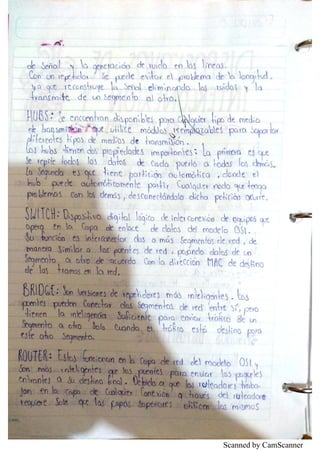 de señal y la generación de ruido en las líneas.
Con un repetidor se puede evitar el problema de la longitud,
ya que reconstruye la señal eliminando los ruidos y la
transmite de un segmento al otro.
HUBS: Se encuentran disponibles para cualquier tipo de medio
de transmisión que utilice módulos reemplazables para soportar
diferentes tipos de medios de transmisión.
Los hubs tienen dos propiedades importantes: La primera es que
se repite todos los datos de cada puerto a todos los demás.
La segunda es que tiene partición automática, donde el
hub puede automáticamente partir cualquier nodo que tenga
problemas con los demás, desconectándolo dicha petición ocurre.
SWITCH: Dispositivo digital lógico de interconexión de equipos que
opera en la capa de enlace de datos del modelo OSI.
Su función es interconectar dos a más segmentos de red, de
manera similar a los puentes de red, pasando datos de un
segmento, a otro de acuerdo con la dirección MAC de destino
de las tramas en la red.
BRIDGE: Son versiones de repetidores más inteligentes. Los
puentes pueden conectar dos segmentos de red entre sí, pero
tienen la inteligencia suficiente para enviar tráfico de un
segmento a otro solo cuando el tráfico está destino para
este otro segmento.
ROUTER: Estos funcionan en la capa de red del modelo OSI y
son más inteligentes que los puentes para enviar los paquetes
entrantes a su destino final. Debido a que los ruteadores traba-
jan en la capa de cualquier conexión a través del ruteadore
requiere solo que las capas superiores utilicen los mismos
Scanned by CamScanner